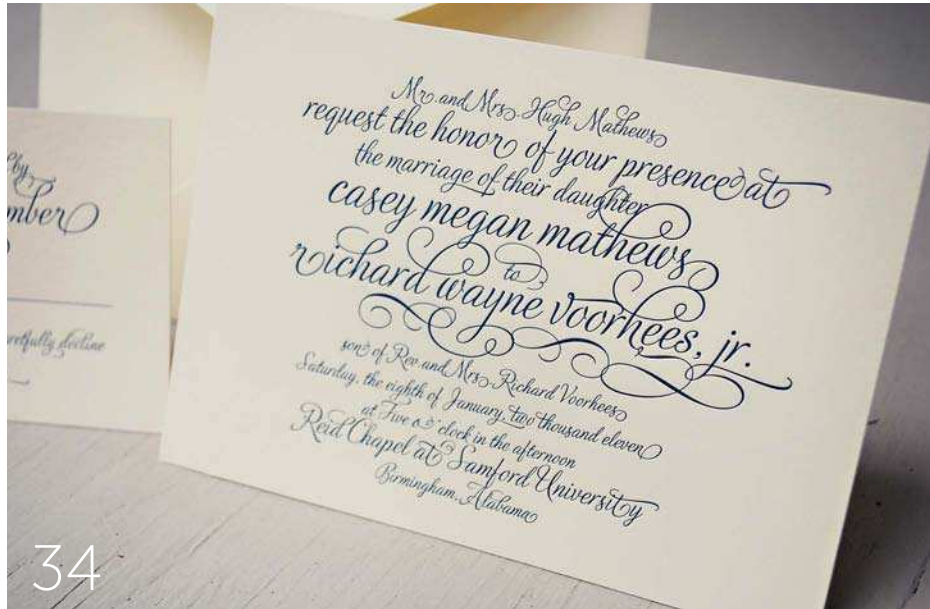 Mr. and Mrs. Hugh Mathews
request the honor of your presence at
the marriage of their daughter
casey megan mathews
to
richard wayne voorhees, jr.
son of Rev. and Mrs. Richard Voorhees
Saturday, the eighth of January, two thousand eleven
at Five o' clock in the afternoon
Reid Chapel at Samford University
Birmingham, Alabama
by
mber
decline
34